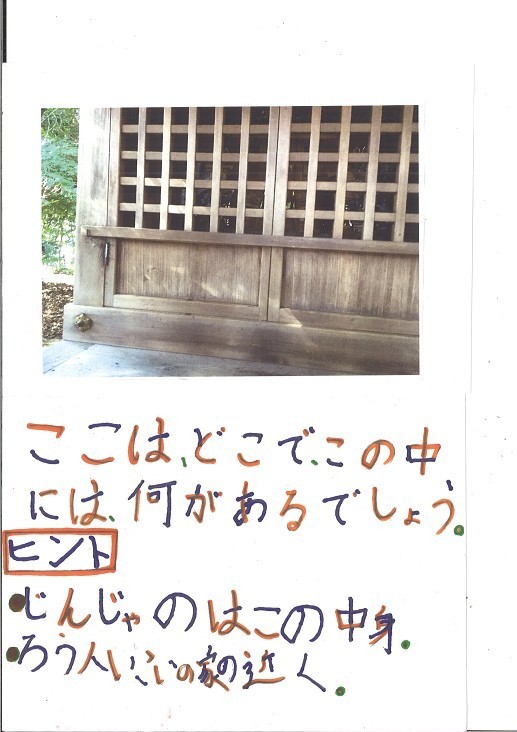 ここは、どこで、この中
には、何があるでしょう。
ヒント
・じんじゃのはこの中身。
・ろう人いこいの家の近く。